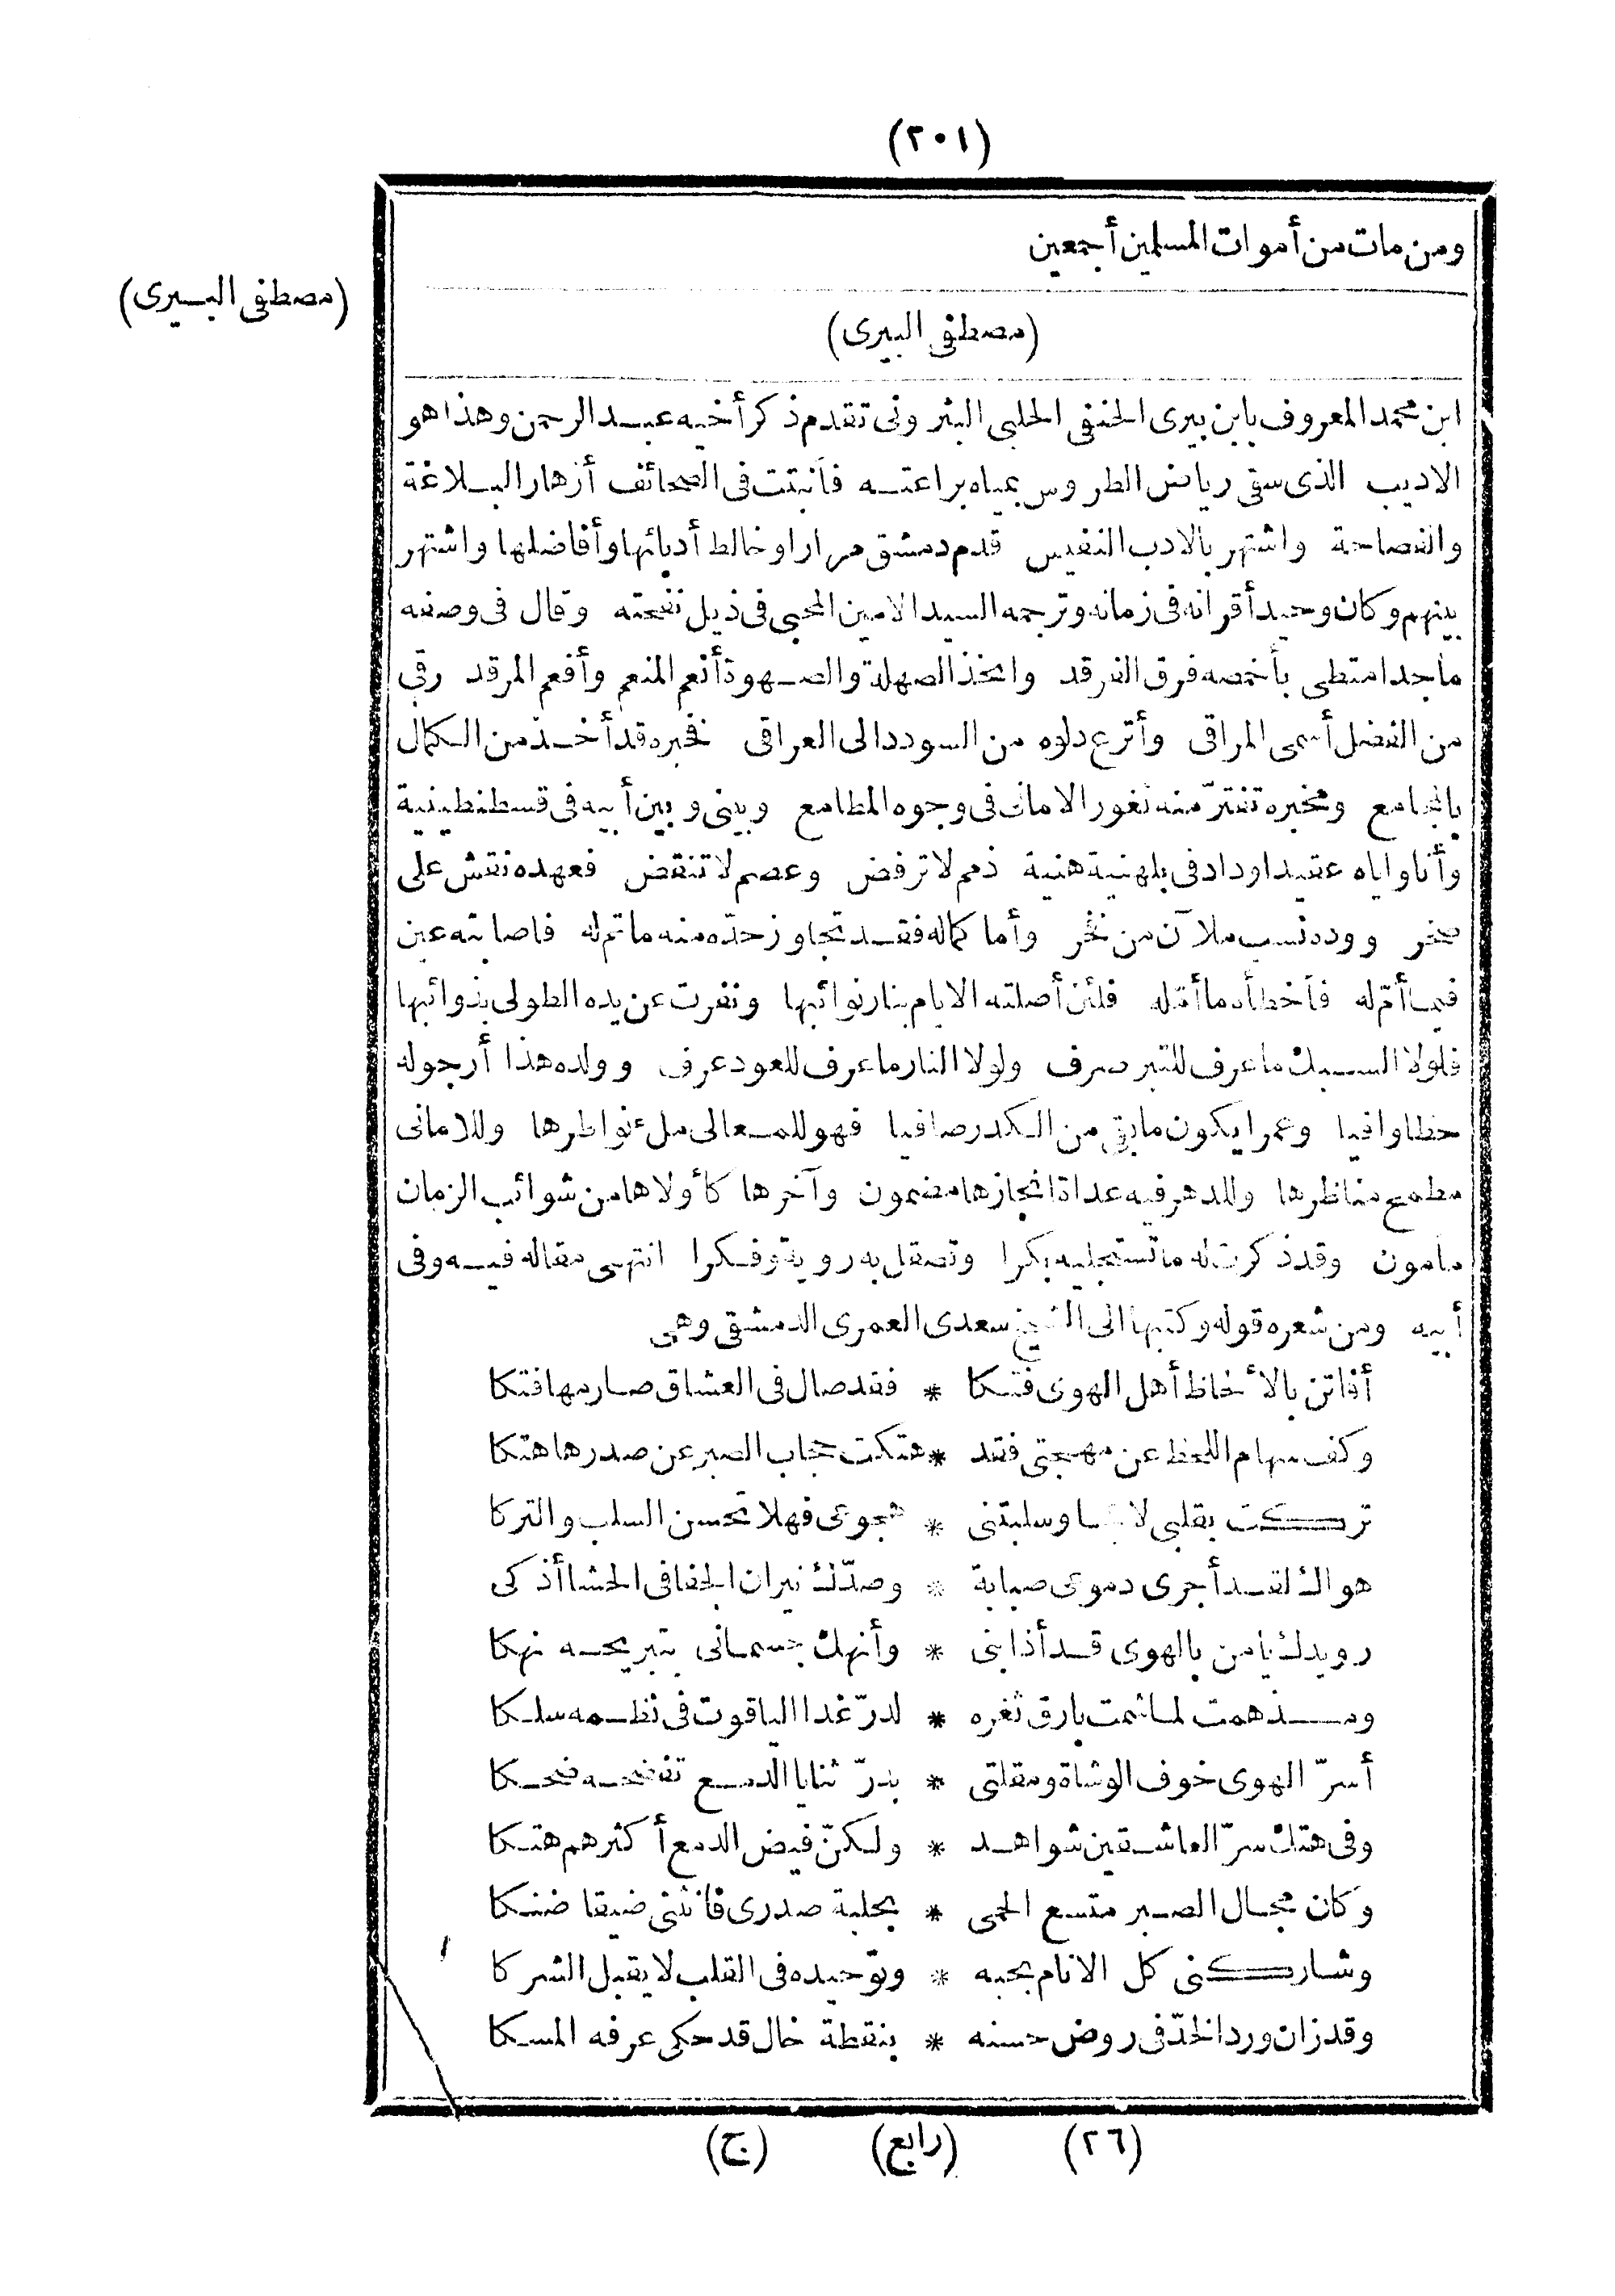 (٢٠١)
ومن مات من أموات المسلمين أجمعين
(مصطفى البيرى)
(مصطفى البيرى)
ابن محمد المعروف بابن بيرى الحنفى الحلبى البترونى تقدم ذكر أخيه عبد الرحمن وهذا هو
الاديب الذى سقى رياض الطروس بمياه براعته فأنبتت فى الصحائف أزهار البلاغة
والفصاحة واشتهر بالادب النفيس قدم دمشق مرارا وخالط أدبائها وأفاضلها واشتهر
بينهم وكان وحيد أقرانه فى زمانه وترجمه السيد الامين المحبى فى ذيل نفحته وقال فى وصفه
ماجد امتطى بأخمصه فرق الفرقد واتخذ الصهلة والصهوة أنعم المنعم وأفعم المرقد رقى
من الفضل أسمى المراقى وأترع دلوه من السودد الى العراقى فخبره قد أخذ من الكمال
بالمجامع ومخبره تفترّ منه ثغور الامانى فى وجوه المطامع وبينى وبين أبيه فى قسطنطينية
وأنا واياه عقيد اوداد فى بلهنية هنية ذمم لا ترفض وعصم لا تنقض فعهده نقش على
صخر ووده نسب ملآن من فخر وأما كماله فقد تجاوز حدّه منه ما تم له فاصابته عين
فيما أمّ له فأخطأه ما أمّله فلئن أصلته الايام بنار نوائبها ونفرت عن يده الطولى بذوائبها
فلولا السبك ما عرف للتبر صرف ولولا النار ما عرف للعود عرف وولده هذا أرجو له
حظا وافيا وعمرا يكون ما بقى من الكدر صافيا فهو للمعالى ملء نواظرها وللامانى
مطمح مناظرها وللدهر فيه عداة انجازها مضمون وآخرها كأولاها من شوائب الزمان
مأمون وقد ذكرت له ما تستجليه بكرا وتصقل به روية وفكرا انتهى مقاله فيه وفى
أبيه ومن شعره قوله وكتبها الى الشيخ سعدى العمرى الدمشقى وهى
أفاتن بالألحاظ أهل الهوى فتكا * فقد صال فى العشاق صارمها فتكا
وكف سهام اللحظ عن مهجتى فقد * هتكت حجاب الصبر عن صدرها هتكا
تركت بقلبى وسلبتنى * هجوعى فهلا تحسن السلب والتركا
هواك لقد أجرى دموعى صبابة * وصدّك نيران الجفا فى الحشا أذكى
رويدك يا من بالهوى قد أذابنى * وأنهك جسمانى بتبريحه نهكا
ومذ همت لما شمت بارق ثغره * لدرّ غدا الياقوت فى نظمه سلكا
أسرّ الهوى خوف الوشاة ومقلتى * بدرّ ثنايا الدمع تفضحه ضحكا
وفى هتك سرّ العاشقين شواهد * ولكنّ فيض الدمع أكثرهم هتكا
وكان مجال الصبر متسع الحمى * بحلبة صدرى فانثنى ضيقا ضنكا
وشاركنى كل الانام بحبه * وتوحيده فى القلب لا يقبل الشركا
وقد زان ورد الخدّ فى روض حسنه * بنقطة خال قد حكى عرفه المسكا
(٢٦) (رابع) (ج)